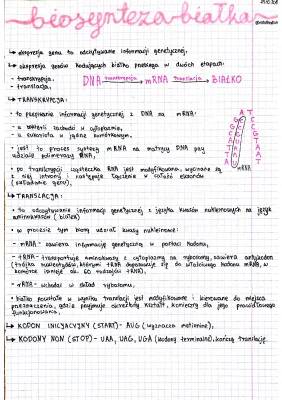 biosynteza białka
→ ekspresja genu to odczytywanie informacji genetycznej,
→ ekspresja genów kodujących białka przebiega w dwóch etapach:
- transkrypcja,
- translacja,
DNA transkrypcja mRNA translacja BIAŁKO
→ TRANSKRYPCJA:
• to przepisanie informacji genetycznej z DNA na mRNA:
- u zachodzi w cytoplazmie,
- u eukariota w jądrze komórkowym,
• jest to proces syntezy mRNA na matrycy DNA przy
udziale polimerazy RNA,
• po transkrypcji cząsteczka RNA jest modyfikowana, wycinane są
z niej introny i następuje łączenie w całość eksonów
(składanie genu),
mRNA
→ TRANSLACJA:
• to odczytywanie informacji genetycznej z języka kwasów nukleinowych na język
aminokwasów (białek)
• w procesie tym biorą udział kwasy nukleinowe:
- mRNA - zawiera informację genetyczną w postaci kodonu,
- tRNA - transportuje aminokwasy z cytoplazmy na rybosomy, zawiera antykodon
(trójka nukleotydów, którymi tRNA dopasowuje się do właściwego kodonu mRNA, w
komórce istnieje ok. 60 rodzajów tRNA),
- rRNA - wchodzi w skład rybosomu,
• białko powstałe w wyniku translacji jest modyfikowane i kierowane do miejsca
przeznaczenia, gdzie przyjmuje określony kształt, konieczny dla jego prawidłowego
funkcjonowania,
→ KODON INICJACYJNY (START) - AUG (wyznacza metioninę),
→ KODONY NON (STOP) - UAA, UAG, UGA (kodony terminalne), kończą translację.